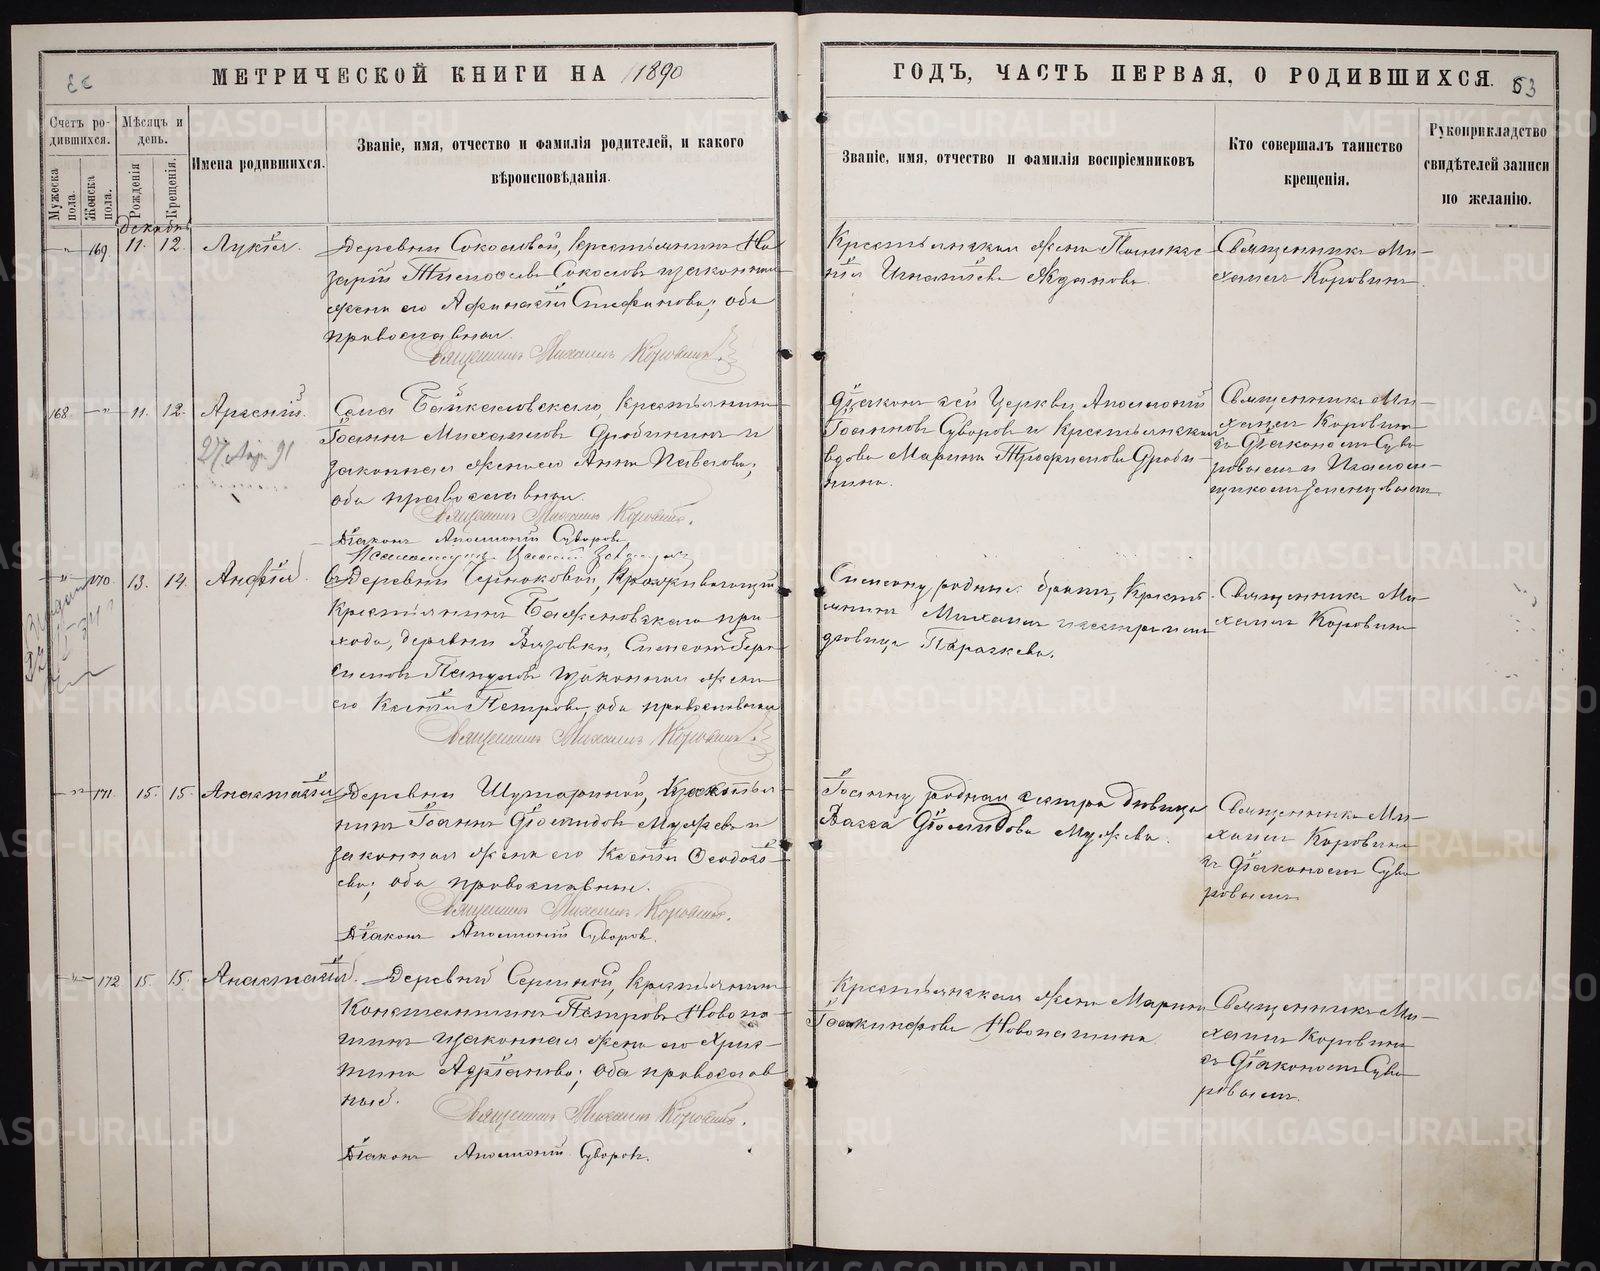 МЕТРИЧЕСКОЙ КНИГИ НА 1890
ГОДЪ, ЧАСТЬ ПЕРВАЯ, О РОДИВШИХСЯ. 53
Счетъ родившихся.
Мужеска пола.
Женска пола.
Мѣсяцъ и день.
Рожденія
Крещенія.
Имена родившихся.
Званіе, имя, отчество и фамилія родителей, и какого
вѣроисповѣданія.
Званіе, имя, отчество и фамилія воспріемниковъ
Кто совершалъ таинство
крещенія.
Рукоприкладство
свидѣтелей записи
по желанію.
Декабрь
169. 11. 12. Лукія.
Деревни Соколовой, крестьянинъ На
зарій Соколовъ и законная
жена его Афанасія Стефанова; оба
православныя.
Священникъ Михаилъ Коровинъ.
Крестьянская жена
нія Игнатіева Жданова.
Священникъ Ми-
хаилъ Коровинъ.
168 11. 12. Арсеній.
27 Апр. 91
Села Байкаловскаго, крестьянинъ
Іоаннъ Михаиловъ Дробининъ и
законная жена его Анна Павлова;
оба православныи.
Священникъ Михаилъ Коровинъ.
Діаконъ Аполлоній Суворовъ
Діаконъ сей Церкви Аполлоній
Іоанновъ Суворовъ и крестьянская
вдова Марина Трофимова Дроби-
нина.
Священникъ Ми-
хаилъ Коровинъ
съ Діакономъ Суво
ровымъ и Псалом-
щикомъ
170. 13. 14. Анфія.
Деревни проживающій
крестьянинъ Баженовскаго при-
хода, деревни Вязовки, Симеонъ Гера
симовъ и законная жена
его Ксенія Петрова, оба православныи
Священникъ Михаилъ Коровинъ.
Симеону родные: братъ, кресть
янинъ Михаилъ и сестра
дѣвица Параскева.
Священникъ Ми-
хаилъ Коровинъ
171. 15. 15. Анастасія
Деревни Шутариной, крестья
нинъ Іоаннъ Діомидовъ Мужевъ и
законная жена его Ксенія Ѳеодосі-
ева; оба православныи.
Священникъ Михаилъ Коровинъ.
Діаконъ Аполлоній Суворовъ.
Іоанну родная сестра дѣвица
Васса Діомидова Мужева.
Священникъ Ми-
хаилъ Коровинъ
съ Діакономъ Суво
ровымъ
172. 15. 15. Анастасія.
Деревни крестьянинъ
Константинъ Петровъ Новопа
шинъ и законная жена его Хрис-
тина Адріанова; оба православ
ныи.
Священникъ Михаилъ Коровинъ.
Діаконъ Аполлоній Суворовъ.
Крестьянская жена Марина
Іоакинфова Новопашина.
Священникъ Ми-
хаилъ Коровинъ
съ Діакономъ Суво
ровымъ.
METRIKI.GASO-URAL.RU